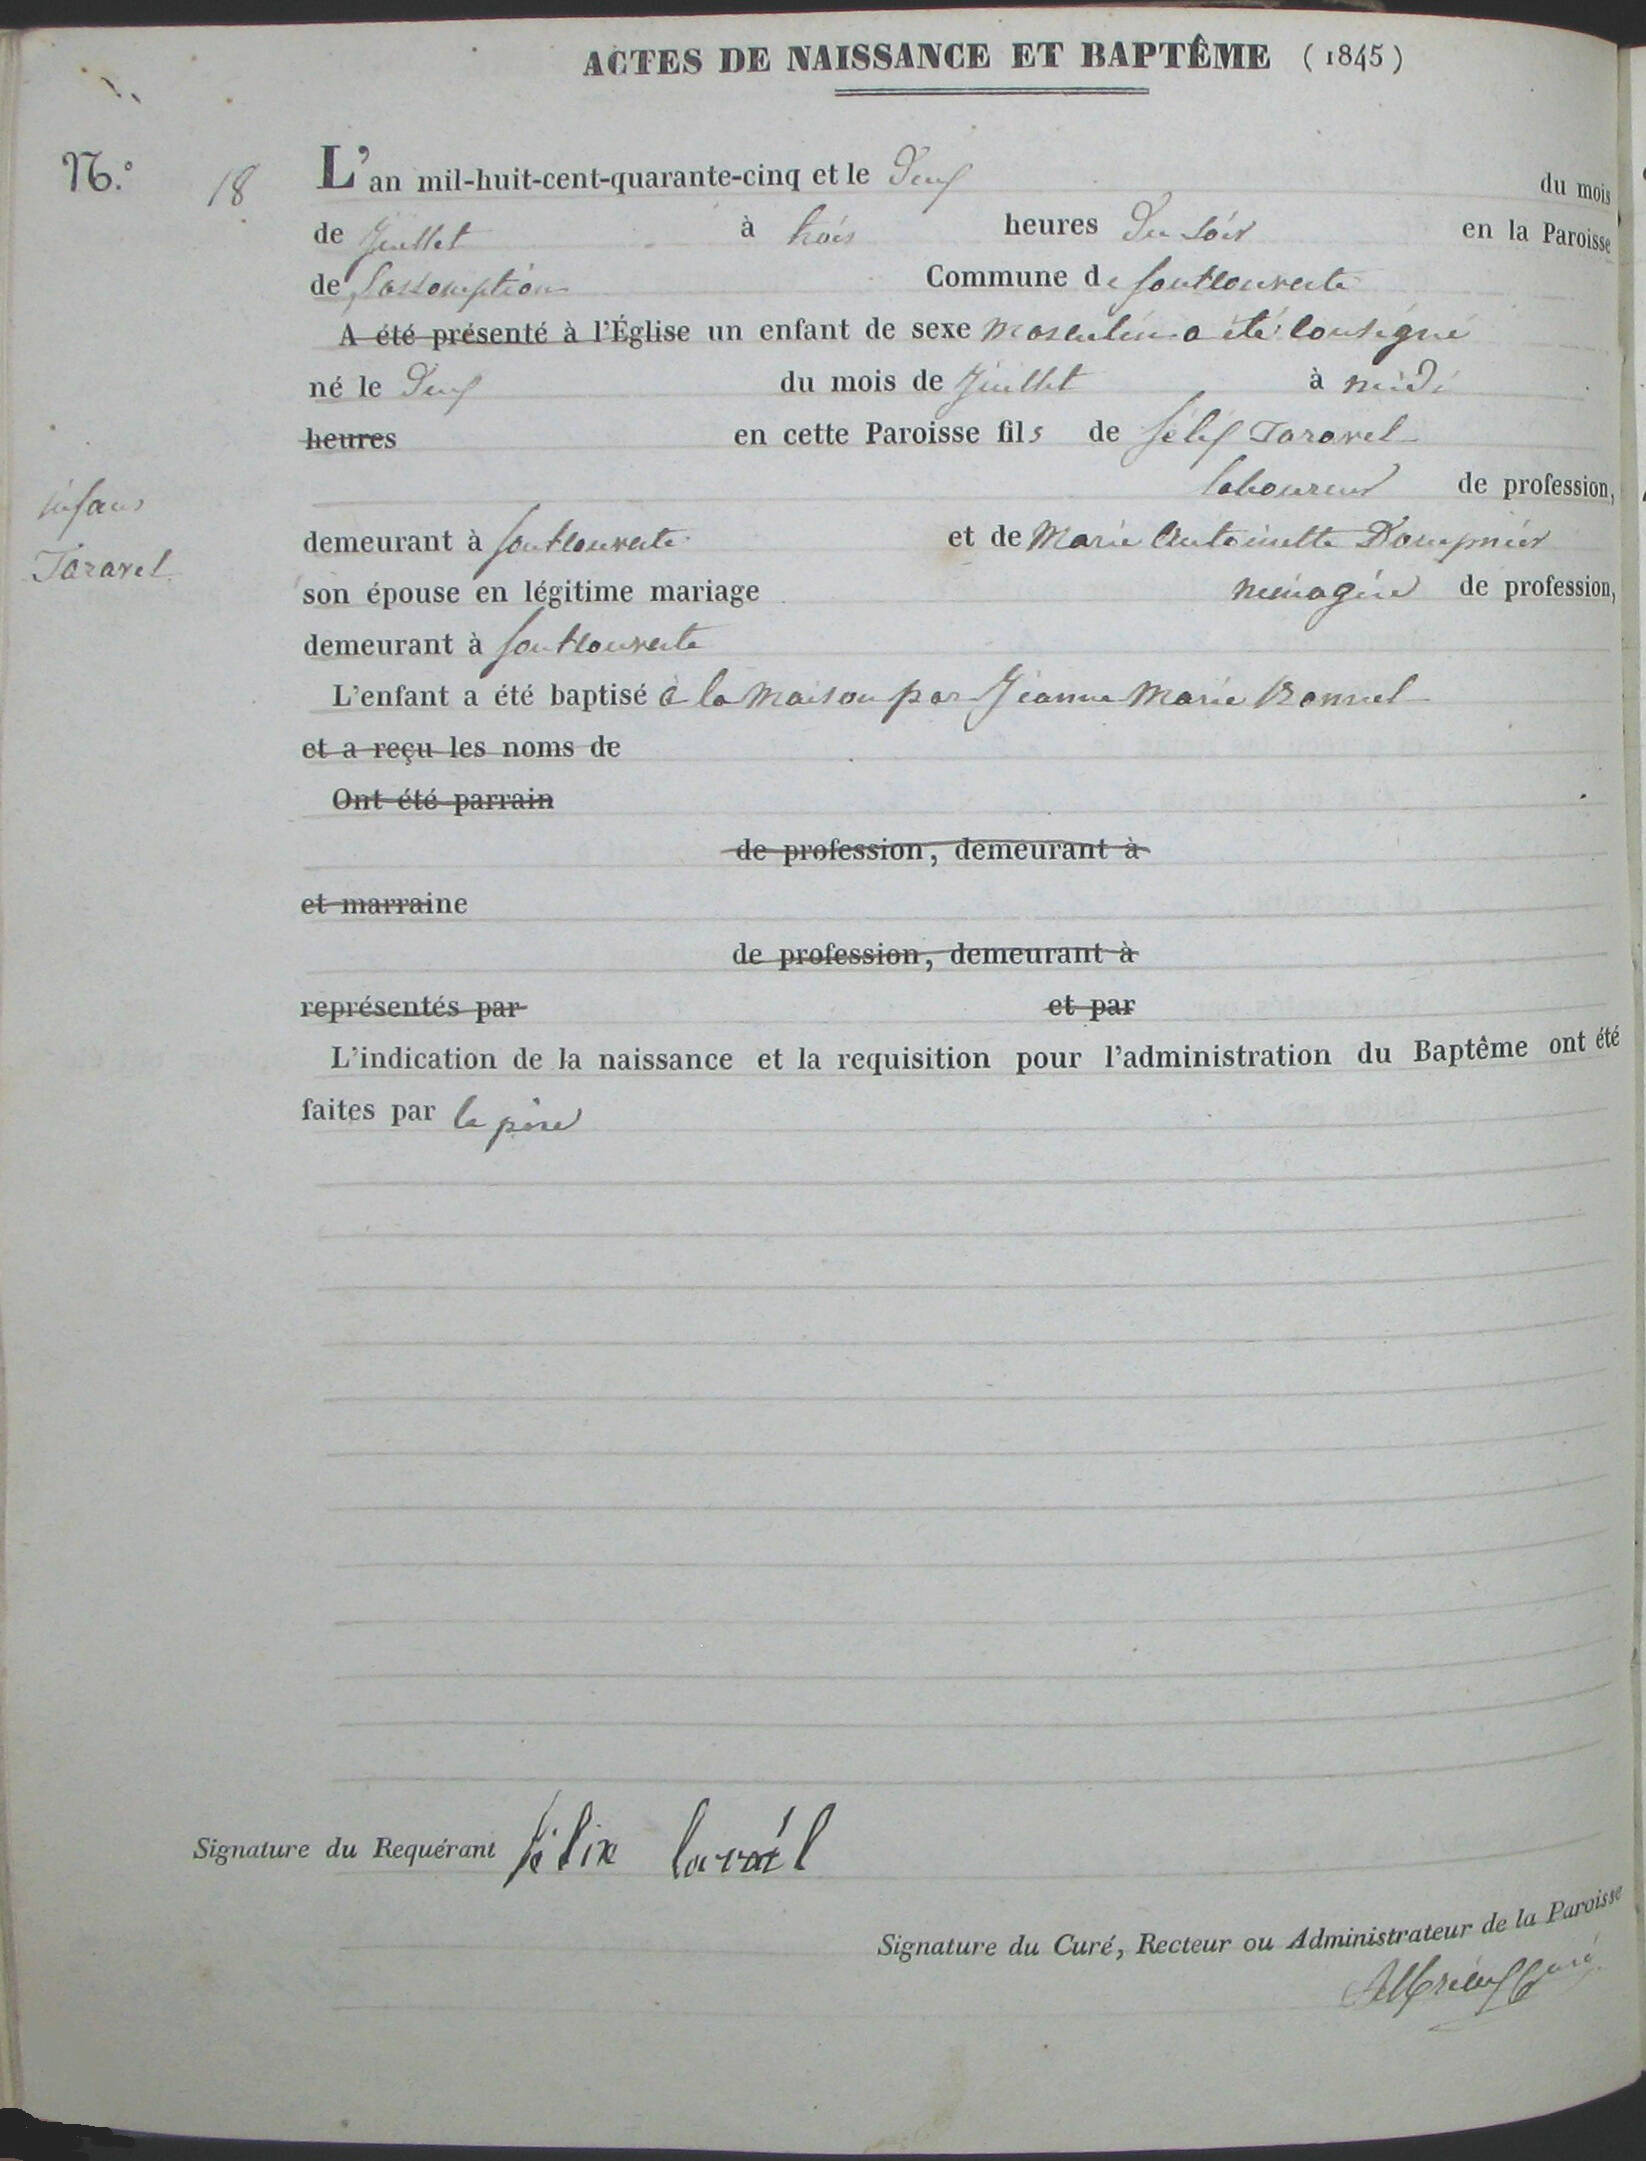 ACTES DE NAISSANCE ET BAPTÊME (1845)
N.º 18 L'an mil-huit-cent-quarante-cinq et le Deux du mois
de Juillet à trois heures du Soir en la Paroisse
de Lassomption Commune de fontcouverte
A été présenté à l'Église un enfant de sexe Masculin a été consigné
né le Deux du mois de Juillet à midi
heures en cette Paroisse fils de félix Taravel
laboureur de profession,
infans
demeurant à fontcouverte et de Marie Antoinette Dompnier
Taravel
son épouse en légitime mariage ménagère de profession,
demeurant à fontcouverte
L'enfant a été baptisé à la maison par Jeanne Marie Bonnel
et a reçu les noms de
Ont été parrain
de profession, demeurant à
et marraine
de profession, demeurant à
représentés par et par
L'indication de la naissance et la requisition pour l'administration du Baptême ont été
faites par le père
Signature du Requérant félix
Signature du Curé, Recteur ou Administrateur de la Paroisse
Curé